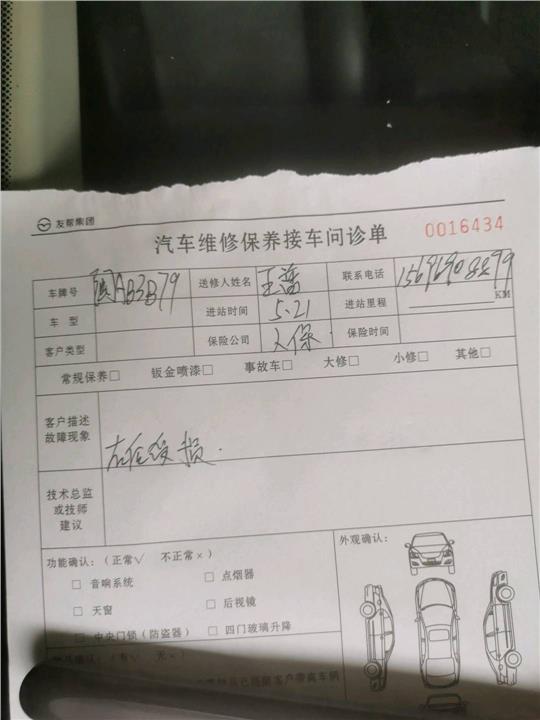 友帮集团
汽车维修保养接车问诊单
0016434
车牌号 AB3B79 送修人姓名 王 联系电话
车 型 进站时间 5.21 进站里程 KM
客户类型 保险公司 人保 保险时间
常规保养□ 钣金喷漆□ 事故车□ 大修□ 小修□ 其他□
客户描述
故障现象
左 受损.
技术总监
或技师
建议
功能确认:(正常√ 不正常×) 外观确认:
□ 音响系统 □ 点烟器
□ 天窗 □ 后视镜
□ 中央门锁(防盗器) □ 四门玻璃升降
确认:(有√ 无×)